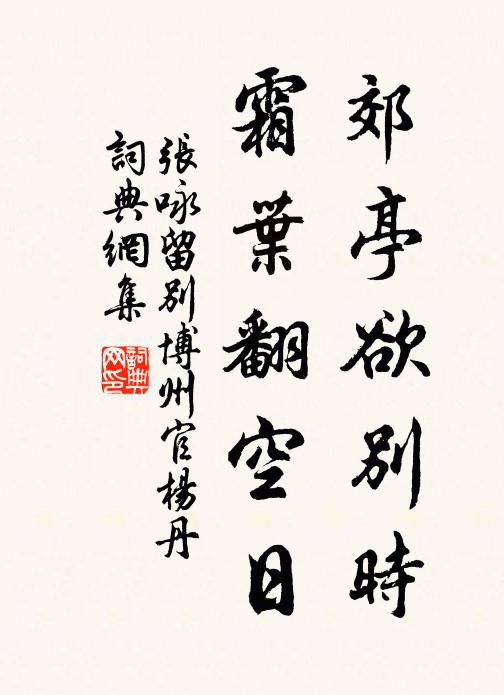 郊亭欲別時
霜葉翻空日
張咏留別博州官楊丹
詞典網集
詞典网印